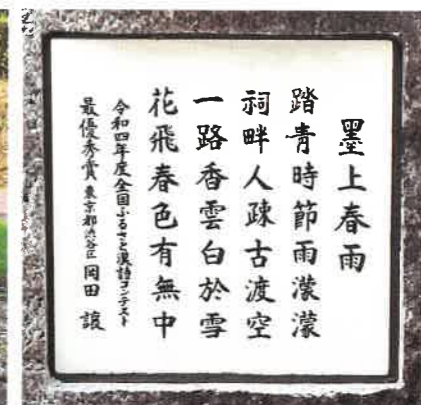 墨上春雨
踏青時節雨濛濛
祠畔人疎古渡空
一路香雲白於雪
花飛春色有無中
令和四年度全国ふるさと漢詩コンテスト
最優秀賞 東京都渋谷区 岡田 譲